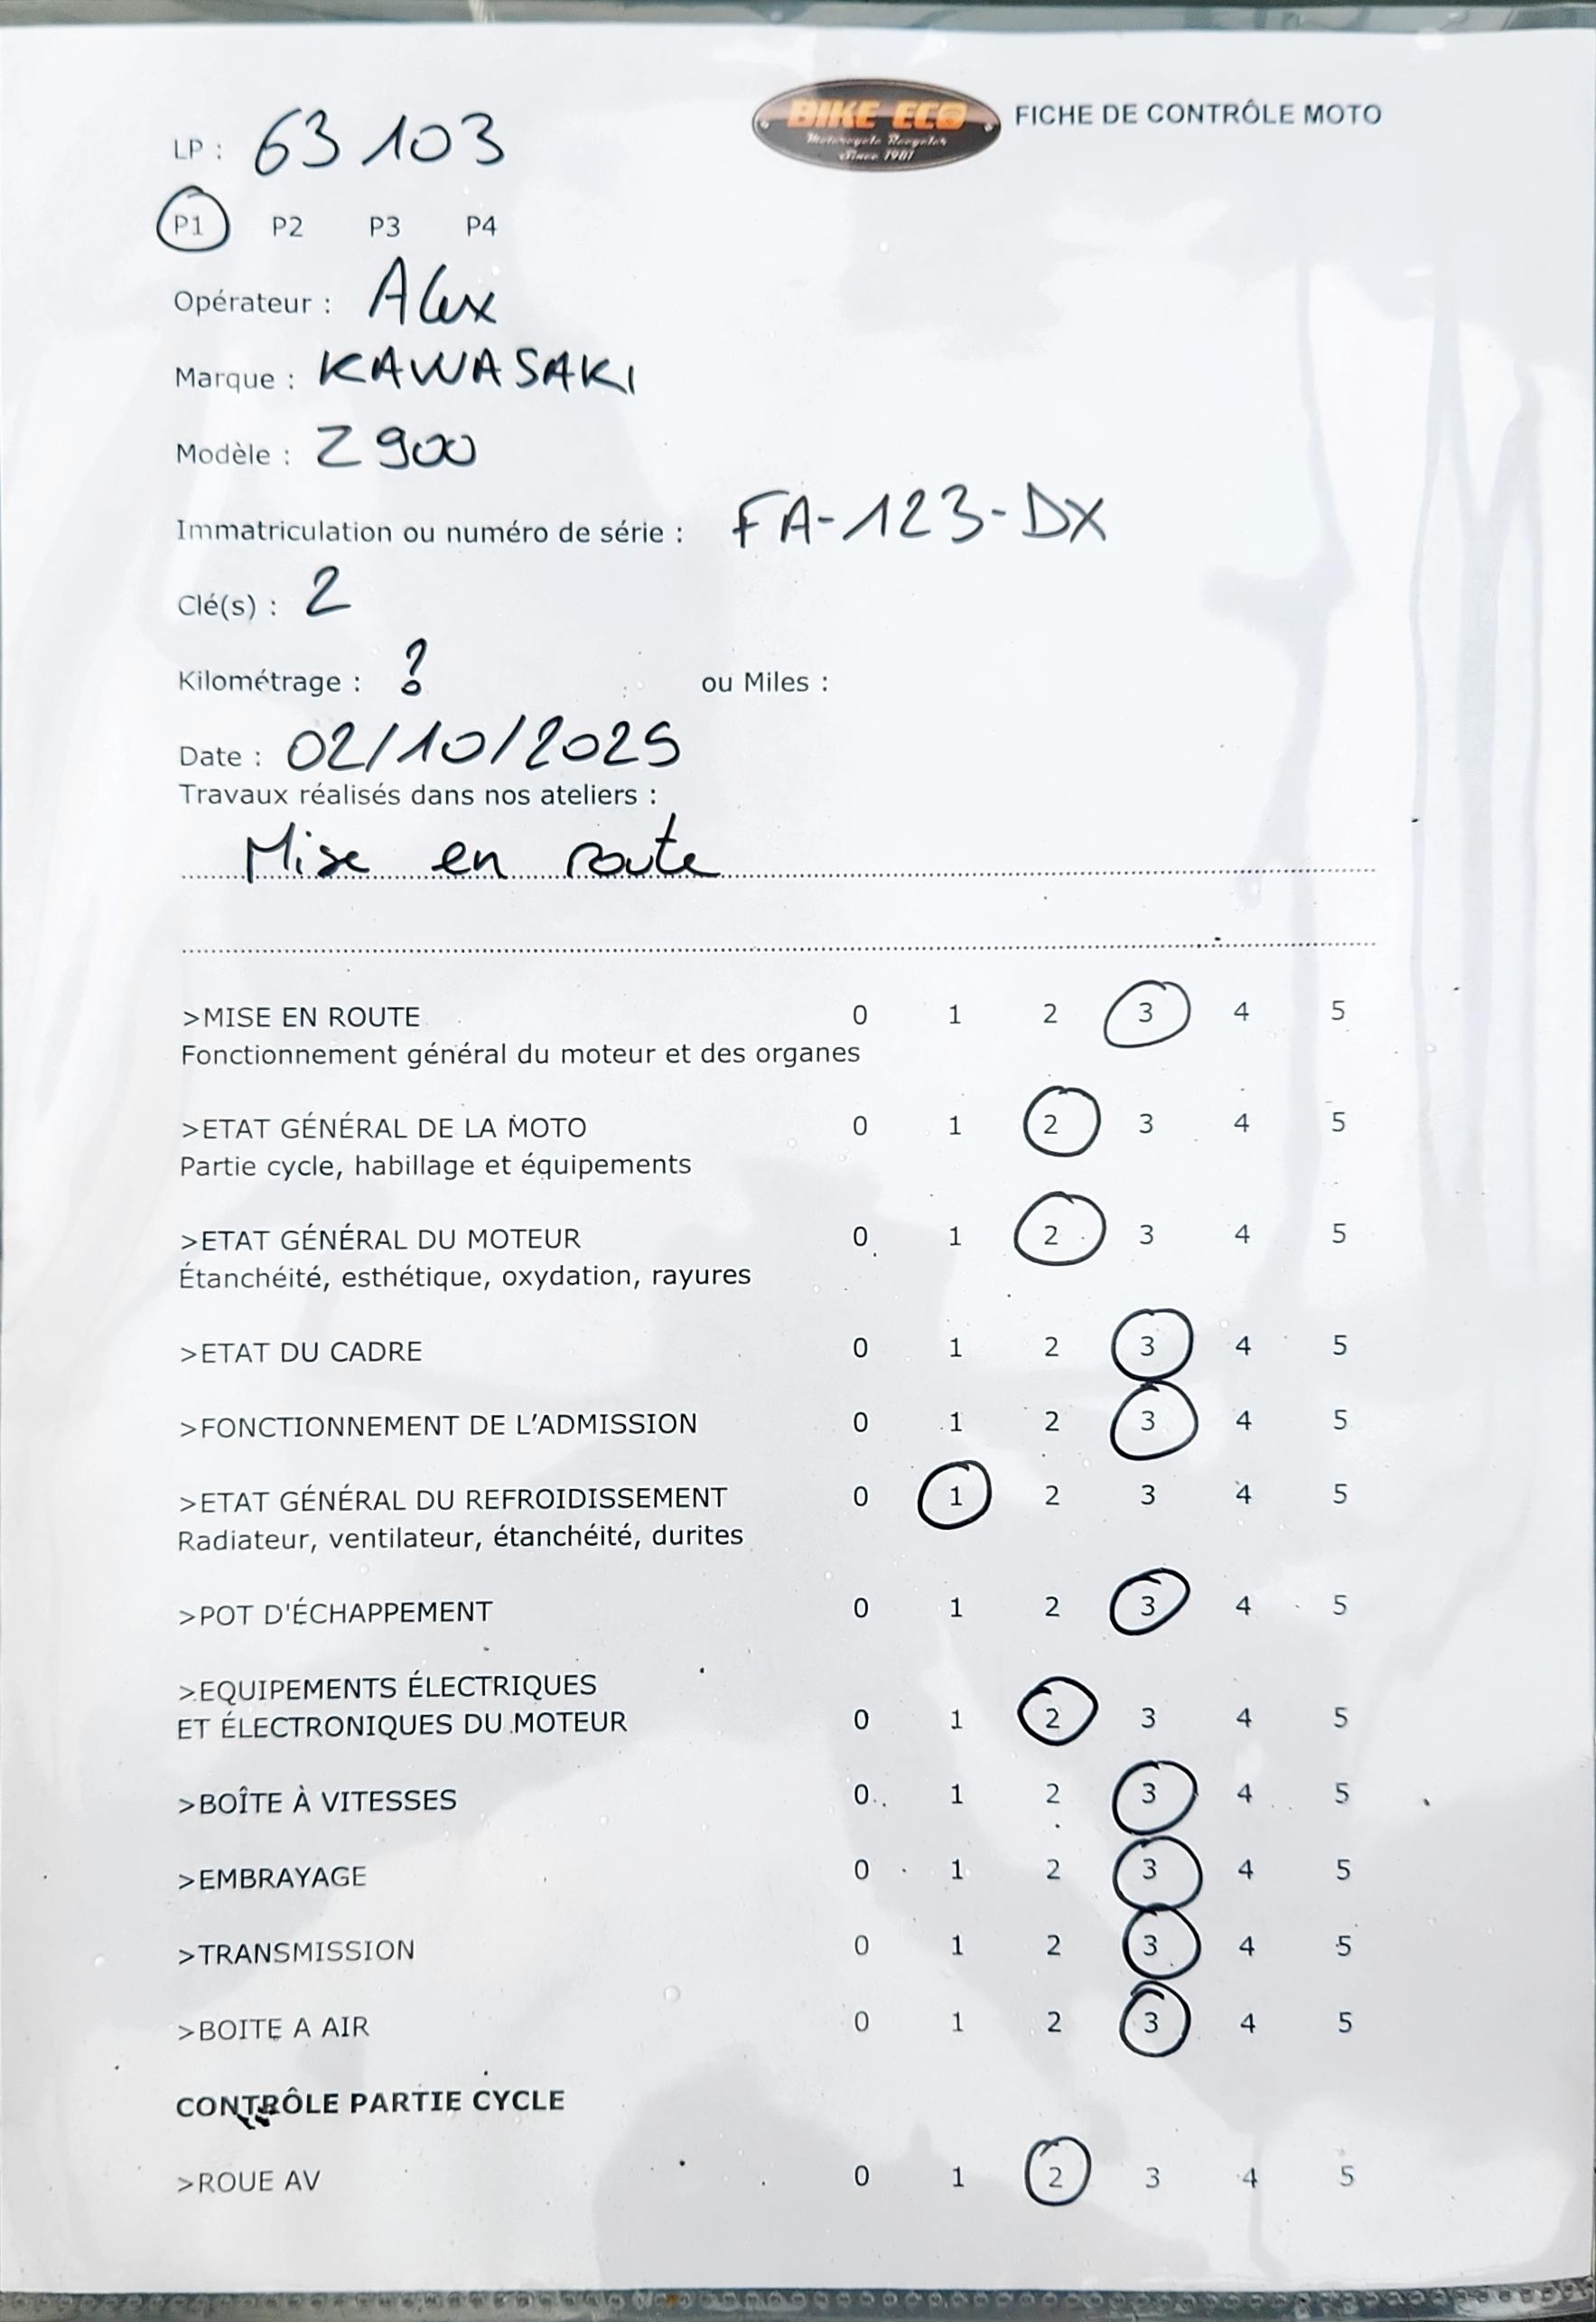 LP : 63103
BIKE ECO
Motorcycle Recycler
Since 1981
FICHE DE CONTRÔLE MOTO
P1 P2 P3 P4
Opérateur : Alex
Marque : KAWASAKI
Modèle : Z900
Immatriculation ou numéro de série : FA-123-DX
Clé(s) : 2
Kilométrage : ? ou Miles :
Date : 02/10/2025
Travaux réalisés dans nos ateliers :
Mise en route
>MISE EN ROUTE 0 1 2 3 4 5
Fonctionnement général du moteur et des organes
>ETAT GÉNÉRAL DE LA MOTO 0 1 2 3 4 5
Partie cycle, habillage et équipements
>ETAT GÉNÉRAL DU MOTEUR 0 1 2 3 4 5
Étanchéité, esthétique, oxydation, rayures
>ETAT DU CADRE 0 1 2 3 4 5
>FONCTIONNEMENT DE L'ADMISSION 0 1 2 3 4 5
>ETAT GÉNÉRAL DU REFROIDISSEMENT 0 1 2 3 4 5
Radiateur, ventilateur, étanchéité, durites
>POT D'ÉCHAPPEMENT 0 1 2 3 4 5
>EQUIPEMENTS ÉLECTRIQUES
ET ÉLECTRONIQUES DU MOTEUR 0 1 2 3 4 5
>BOÎTE À VITESSES 0 1 2 3 4 5
>EMBRAYAGE 0 1 2 3 4 5
>TRANSMISSION 0 1 2 3 4 5
>BOITE A AIR 0 1 2 3 4 5
CONTRÔLE PARTIE CYCLE
>ROUE AV 0 1 2 3 4 5